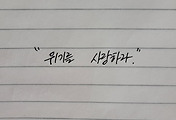 "위기를 사랑하라."